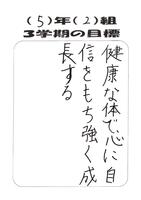 (5)年(2)組
3学期の目標
健康な体で心に自
信をもち強く成
長する